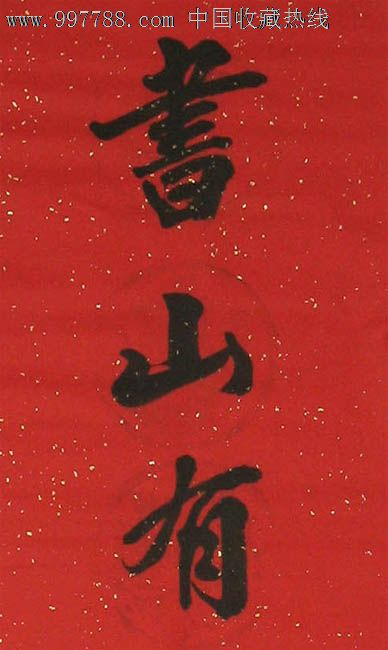 www.997788.com 中国收藏热线
書山有